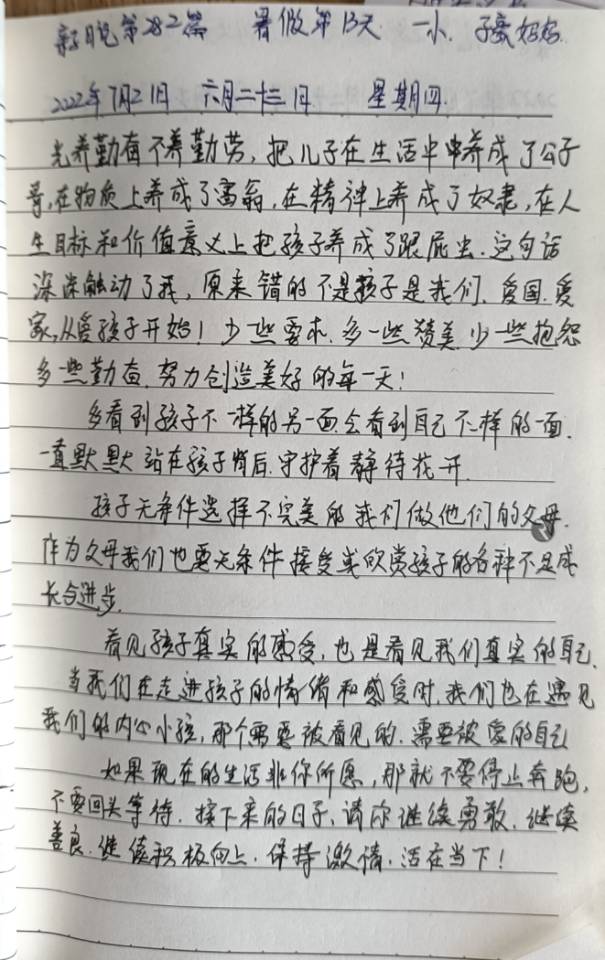 第282篇 暑假第13天 一小 子豪妈妈
2022年7月21日 六月二十三日 星期四.
光养勤奋不养勤劳, 把儿子在生活中养成了公子
哥, 在物质上养成了富翁, 在精神上养成了奴隶, 在人
生目标和价值意义上把孩子养成了跟屁虫. 这句话
深深触动了我, 原来错的不是孩子是我们. 爱国. 爱
家, 从爱孩子开始! 少一些要求. 多一些赞美. 少一些抱怨
多一些勤奋. 努力创造美好的每一天!
多看到孩子不一样的另一面会看到自己不一样的一面.
一直默默站在孩子背后. 守护着静待花开.
孩子无条件选择不完美的我们做他们的父母.
作为父母我们也要无条件接受或欣赏孩子的各种不足成
长与进步.
看见孩子真实的感受, 也是看见我们真实的自己.
当我们在走进孩子的情绪和感受时. 我们也在遇见
我们的内心小孩, 那个需要被看见的. 需要被爱的自己
如果现在的生活非你所愿, 那就不要停止奔跑,
不要回头等待. 接下来的日子, 请你继续勇敢. 继续
善良. 继续积极向上. 保持激情. 活在当下!